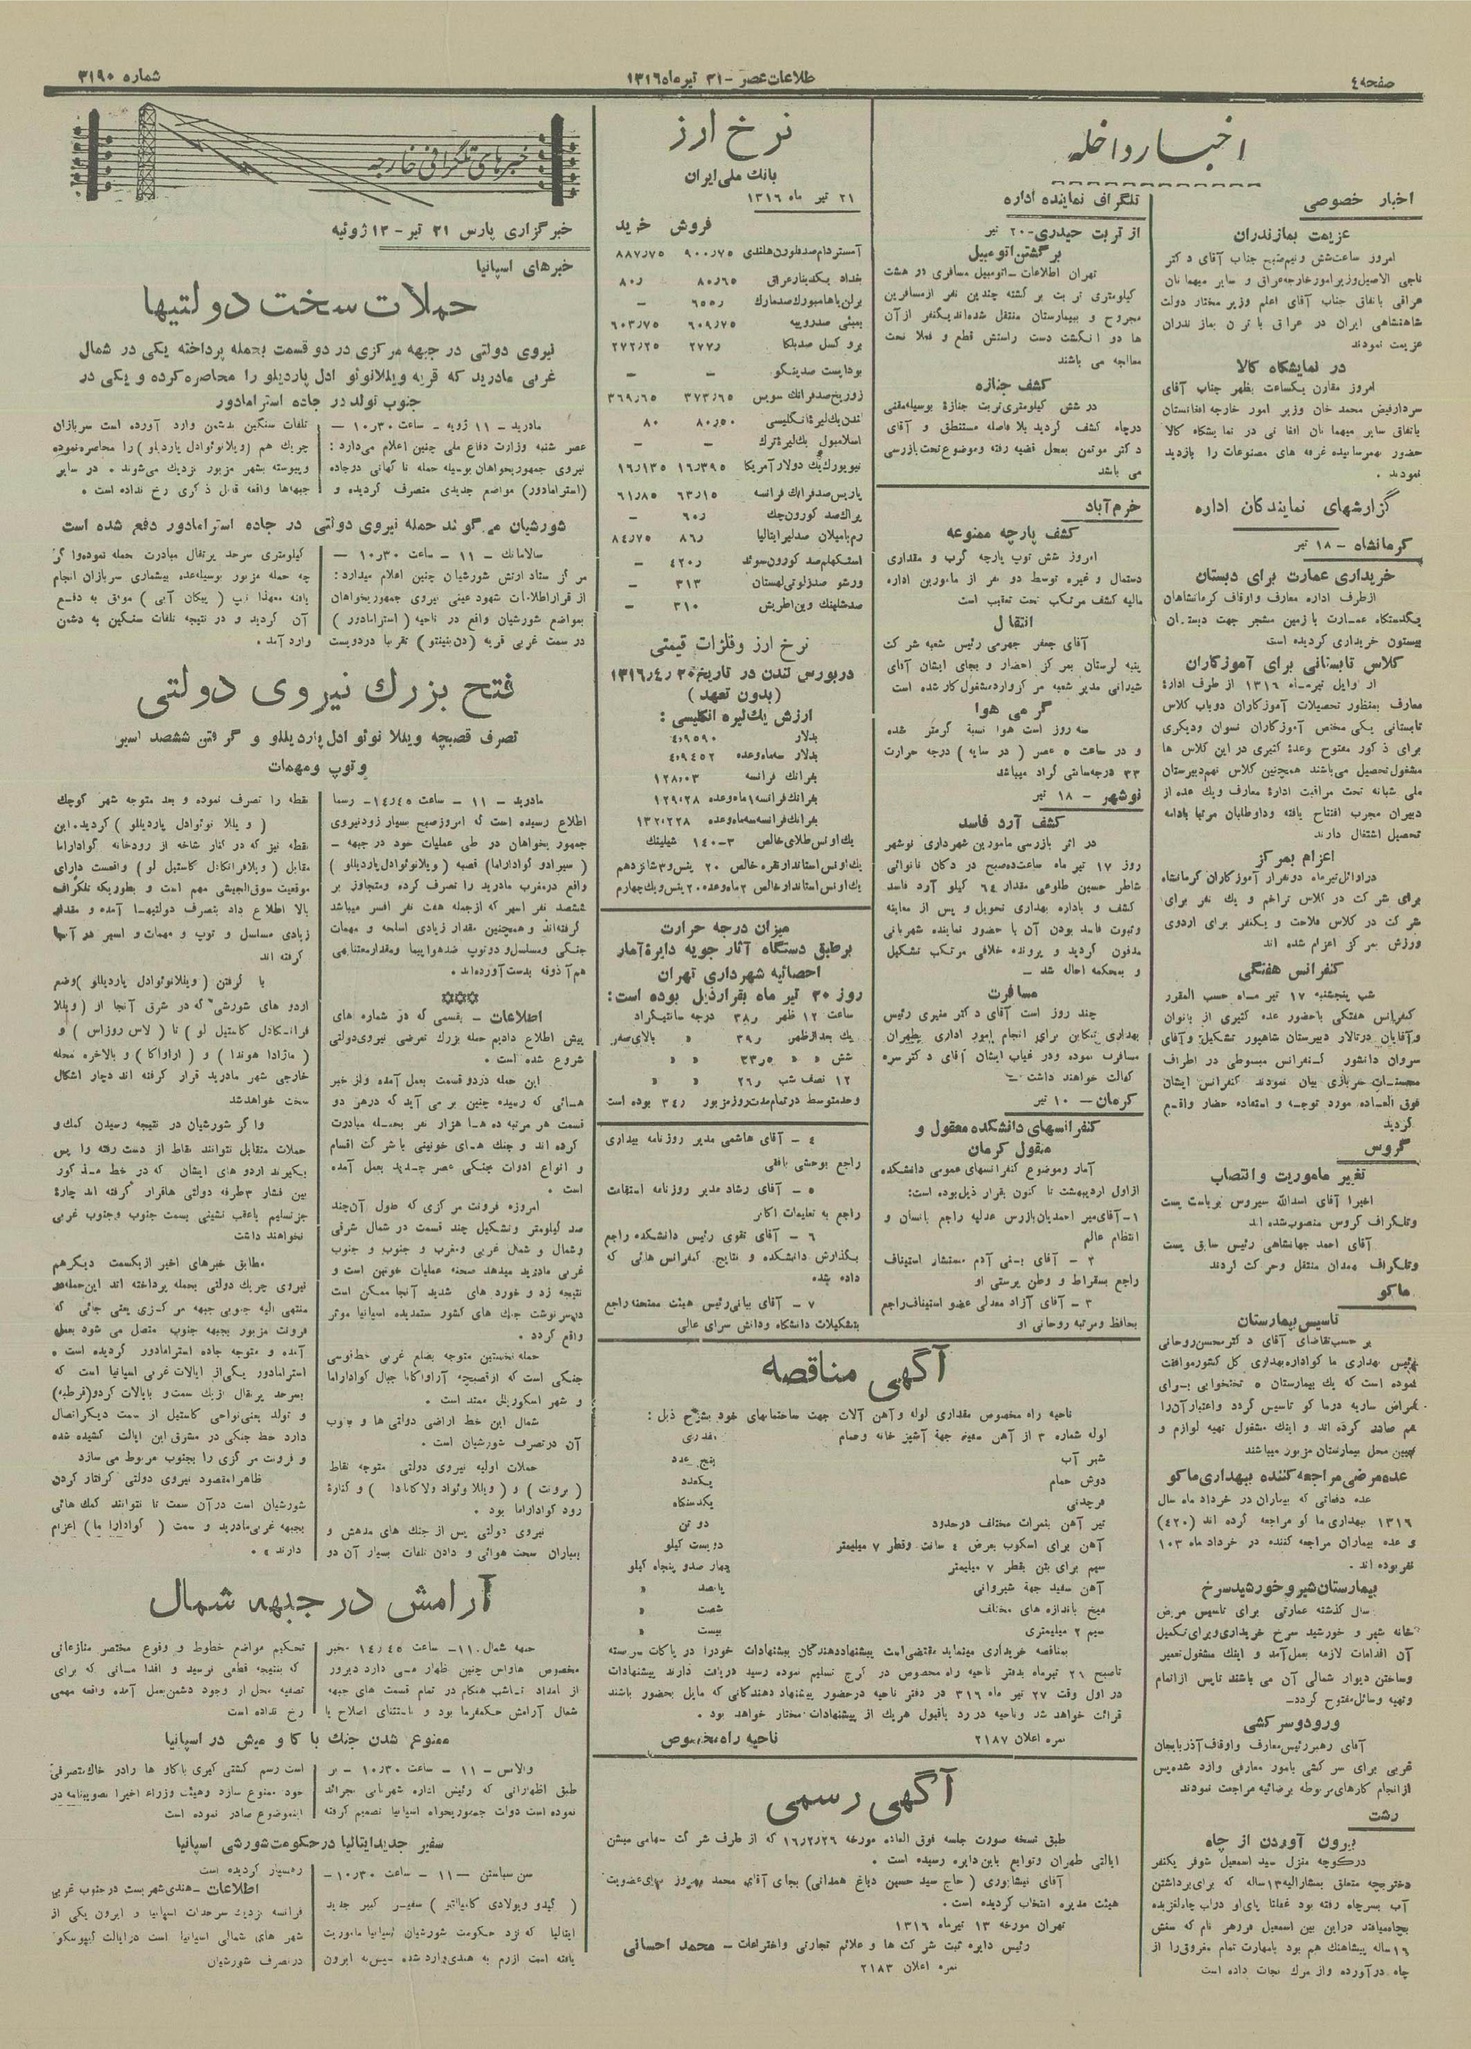 صفحه ٤
طلاعات عصر - ٢١ تیر ماه ١٣١٦
شماره ٣١٩٠
اخبار داخله
اخبار خصوصی
عزیمت بمازندران
امروز ساعت شش و نیم صبح جناب آقای دکتر
ناجی الاصیل وزیر امور خارجه عراق و سایر میهمانان
عراقی باتفاق جناب آقای اعلم وزیر مختار دولت
شاهنشاهی ایران در عراق با ترن بمازندران
عزیمت نمودند
در نمایشگاه کالا
امروز مقارن یکساعت بظهر جناب آقای
سردار فیض محمد خان وزیر امور خارجه افغانستان
باتفاق سایر میهمانان افغانی در نمایشگاه کالا
حضور بهمرسانیده غرفه های مصنوعات را بازدید
نمودند .
گزارشهای نمایندگان اداره
کرمانشاه - ١٨ تیر
خریداری عمارت برای دبستان
از طرف اداره معارف و اوقاف کرمانشاهان
یکدستگاه عمارت با زمین مشجر جهت دبستان
بیستون خریداری گردیده است
کلاس تابستانی برای آموزگاران
از اوایل تیر ماه ١٣١٦ از طرف ادارهٔ
معارف بمنظور تحصیلات آموزگاران دو باب کلاس
تابستانی یکی مختص آموزگاران نسوان و دیگری
برای ذکور مفتوح و عدهٔ کثیری در این کلاس ها
مشغول تحصیل می باشند همچنین کلاس نهم دبیرستان
ملی شبانه تحت مراقبت ادارهٔ معارف و یک عده از
دبیران مجرب افتتاح یافته و داوطلبان مرتبا بادامه
تحصیل اشتغال دارند
اعزام بمرکز
در اوائل تیر ماه دو نفر از آموزگاران کرمانشاه
برای شرکت در کلاس تراخم و یک نفر برای
شرکت در کلاس فلاحت و یکنفر برای اردوی
ورزش بمرکز اعزام شده اند
کنفرانس هفتگی
شب پنجشنبه ١٧ تیر ماه حسب المقرر
کنفرانس هفتگی با حضور عده کثیری از بانوان
و آقایان در تالار دبیرستان شاهپور تشکیل و آقای
سروان دانشور کنفرانس مبسوطی در اطراف
محسنات خربازی بیان نمودند کنفرانس ایشان
فوق العاده مورد توجه و استفاده حضار واقع
گردید
گروس
تغییر ماموریت و انتصاب
اخیرا آقای اسدالله سیروس بریاست پست
و تلگراف گروس منصوب شده اند
آقای احمد جهانشاهی رئیس سابق پست
و تلگراف همدان منتقل و حرکت کردند
ماکو
تاسیس بیمارستان
بر حسب تقاضای آقای دکتر محسن روحانی
رئیس بهداری ماکو اداره بهداری کل کشور موافقت
نموده است که یک بیمارستان ٥ تختخوابی برای
امراض ساریه در ماکو تاسیس گردد و اعتبار آن را
هم صادر کرده اند و اینک مشغول تهیه لوازم و
تعیین محل بیمارستان مزبور میباشند
عده مرضی مراجعه کننده ببهداری ماکو
عده دفعاتی که بیماران در خرداد ماه سال
١٣١٦ ببهداری ماکو مراجعه کرده اند (٤٢٠)
و عده بیماران مراجعه کننده در خرداد ماه ١٠٣
نفر بوده اند .
بیمارستان شیر و خورشید سرخ
سال گذشته عمارتی برای تاسیس مریض
خانه شیر و خورشید سرخ خریداری و برای تکمیل
آن اقدامات لازمه بعمل آمد و اینک مشغول تعمیر
و ساختن دیوار شمالی آن می باشند تا پس از اتمام
و تهیه وسائل مفتوح گردد -
ورود و سرکشی
آقای رهبر رئیس معارف و اوقاف آذربایجان
غربی برای سرکشی بامور معارفی وارد شده پس
از انجام کارهای مربوطه برضائیه مراجعت نمودند
رشت
بیرون آوردن از چاه
در کوچه منزل سید اسمعیل شوفر یکنفر
دختر بچه متعلق بمشارالیه ١٣ ساله که برای برداشتن
آب بسر چاه رفته بود غفلتا پای او در آب چاه لغزیده
بچاه میافتد در این بین اسمعیل فررهر نام که سنش
١٦ ساله پیشاهنگ هم بود بامهارت تمام مغروق را از
چاه در آورده و از مرگ نجات داده است
تلگراف نماینده اداره
از تربت حیدری - ٢٠ تیر
برگشتن اتومبیل
تهران اطلاعات - اتومبیل مسافری در هشت
کیلومتری تربت برگشته چندین نفر از مسافرین
مجروح و بیمارستان منتقل شده اند یکنفر از آن
ها دو انگشت دست راستش قطع و فعلا تحت
معالجه می باشند
کشف جنازه
در شش کیلومتری تربت جنازهٔ بوسیله مقنی
در چاه کشف گردید بلا فاصله مستنطق و آقای
دکتر موتمن بمحل قضیه رفته و موضوع تحت بازرسی
می باشد
خرم آباد
کشف پارچه ممنوعه
امروز شش توپ پارچه کرپ و مقداری
دستمال و غیره توسط دو نفر از مامورین اداره
مالیه کشف مرتکب تحت تعقیب است
انتقال
آقای جعفر جهرمی رئیس شعبه شرکت
پنبه لرستان بمرکز احضار و بجای ایشان آقای
شیدانی مدیر شعبه مرکز وارد مشغول کار شده است
گرمی هوا
سه روز است هوا نسبة گرمتر شده
و در ساعت ٥ عصر ( در سایه ) درجه حرارت
٣٣ درجه سانتی گراد میباشد
نوشهر - ١٨ تیر
کشف آرد فاسد
در اثر بازرسی مامورین شهرداری نوشهر
روز ١٧ تیر ماه ساعت ده صبح در دکان نانوائی
شاطر حسین طلوعی مقدار ٦٤ کیلو آرد فاسد
کشف و باداره بهداری تحویل و پس از معاینه
و ثبوت فاسد بودن آن با حضور نماینده شهربانی
مدفون گردید و پرونده خلافی مرتکب تشکیل
و بمحکمه احاله شد -
مسافرت
چند روز است آقای دکتر منیری رئیس
بهداری تنکابن برای انجام امور اداری بطهران
مسافرت نموده و در غیاب ایشان آقای دکتر سره
کفالت خواهند داشت -
کرمان - ١٠ تیر
کنفرانسهای دانشکده معقول و
منقول کرمان
آمار و موضوع کنفرانسهای عمومی دانشکده
از اول اردیبهشت تا کنون بقرار ذیل بوده است:
١- آقای میر احمدیان بازرس عدلیه راجع بانسان و
انتظام عالم
٢ - آقای بمنی آدم مستشار استیناف
راجع بسقراط و وطن پرستی او
٣ - آقای آزاد معدلی عضو استیناف راجع
بحافظ و مرتبه روحانی او
نرخ ارز
بانک ملی ایران
٢١ تیر ماه ١٣١٦
فروش خرید
آمستردام صد فلورن هلندی ٩٠٠٫٧٥ ٨٨٧٫٧٥
بغداد یکدینار عراق ٨٠٫٦٥ ٨٠٫
برلن یا هامبورک صد مارک ٦٥٥٫ -
بمبئی صد روپیه ٦٠٩٫٧٥ ٦٠٣٫٧٥
بروکسل صد بلکا ٢٧٧٫ ٢٧٢٫٢٥
بوداپست صد پنگو - -
زوریخ صد فرانک سویس ٣٧٣٫٦٥ ٣٦٩٫٦٥
لندن یک لیرهٔ انگلیسی ٨٠٫٥٠ ٨٠
اسلامبول یک لیرهٔ ترک - -
نیویورک یک دولار آمریکا ١٦٫٣٩٥ ١٦٫١٣٥
پاریس صد فرانک فرانسه ٦٣٫١٥ ٦١٫٨٥
پراگ صد کورون چک ٦٠٫ -
رم یا میلان صد لیر ایتالیا ٨٦٫ ٨٤٫٧٥
استکهلم صد کورون سوئد ٤٢٠٫ -
ورشو صد زلوتی لهستان ٣١٣ -
صد شلینک وین اطریش ٣١٠ -
نرخ ارز و فلزات قیمتی
در بورس لندن در تاریخ ٢٠٫٤٫١٣١٦
(بدون تعهد)
ارزش یک لیره انگلیسی :
بدلار ٤٫٩٥٩٠
بدلار سه ماه وعده ٤٫٩٤٥٢
بفرانک فرانسه ١٢٨٫٠٣
بفرانک فرانسه ١ ماه وعده ١٢٩٫٢٨
بفرانک فرانسه سه ماه وعده ١٣٢٫٢٢٨
یک اونس طلای خالص ٣-١٤٠ شیلینک
یک اونس استاندارد نقره خالص ٢٠ پنس و ٣ شانزدهم
یک اونس استاندارد خالص ٢ ماه وعده ٢٠ پنس و یک چهارم
میزان درجه حرارت
بر طبق دستگاه آثار جویه دایرهٔ آمار
احصائیه شهرداری تهران
روز ٢٠ تیر ماه بقرار ذیل بوده است:
ساعت ١٢ ظهر ٣٨٫ درجه سانتیگراد
یک بعد از ظهر ٣٩٫ » بالای صفر
شش » » ٣٣٫٥ » »
١٢ نصف شب ٢٦٫ » »
و حد متوسط در تمام مدت روز مزبور ٣٤٫ بوده است
٤ - آقای هاشمی مدیر روزنامه بیداری
راجع بوحشی بافقی
٥ - آقای رشاد مدیر روزنامه استقامت
راجع به تعلیمات اکابر
٦ - آقای تقوی رئیس دانشکده راجع
بگذارش دانشکده و نتایج کنفرانس هائی که
داده شده
٧ - آقای بیانی رئیس هیئت ممتحنه راجع
بتشکیلات دانشگاه و دانش سرای عالی
آگهی مناقصه
ناحیه راه مخصوص مقداری لوله و آهن آلات جهت ساختمانهای خود بشرح ذیل :
لوله شماره ٣ از آهن سفید جهة آشپز خانه و حمام مقداری
شیر آب پنج عدد
دوش حمام یکعدد
فرچدنی یکدستگاه
تیر آهن بنمرات مختلف در حدود دو تن
آهن برای اسکوپ بعرض ٤ سانت و قطر ٧ میلیمتر دویست کیلو
سیم برای بتن بقطر ٧ میلیمتر چهار صد و پنجاه کیلو
آهن سفید جهة شیروانی پانصد »
میخ باندازه های مختلف شصت »
سیم ٢ میلیمتری بیست »
بمناقصه خریداری مینماید مقتضی است پیشنهاد دهندگان پیشنهادات خود را در پاکات سربسته
تا صبح ٢٦ تیر ماه بدفتر ناحیه راه مخصوص در کرج تسلیم نموده رسید دریافت دارند پیشنهادات
در اول وقت ٢٧ تیر ماه ٣١٦ در دفتر ناحیه در حضور پیشنهاد دهندگانی که مایل بحضور باشند
قرائت خواهد شد و ناحیه در رد یا قبول هر یک از پیشنهادات مختار خواهد بود .
نمره اعلان ٢١٨٧ ناحیه راه مخصوص
آگهی رسمی
طبق نسخه صورت جلسه فوق العاده مورخه ١٦٫٢٫٢٦ که از طرف شرکت سهامی میشن
ایالتی طهران و توابع باین دایره رسیده است .
آقای نیشابوری (حاج سید حسین دباغ همدانی) بجای آقای محمد بهروز برای عضویت
هیئت مدیره انتخاب گردیده است .
تهران مورخه ١٣ تیر ماه ١٣١٦
رئیس دایره ثبت شرکت ها و علائم تجارتی و اختراعات - محمد احسانی
نمره اعلان ٢١٨٣
خبرهای تلگرافی خارجه
خبرگزاری پارس ٢١ تیر - ١٣ ژوئیه
خبرهای اسپانیا
حملات سخت دولتیها
نیروی دولتی در جبهه مرکزی در دو قسمت بحمله پرداخته یکی در شمال
غربی مادرید که قریه ویلانوئو ادل پاردیلو را محاصره کرده و یکی در
جنوب تولد در جاده استرامادور
مادرید - ١١ ژویه - ساعت ١٠٫٣٠ -
عصر شنبه وزارت دفاع ملی چنین اعلام میدارد :
نیروی جمهوریخواهان بوسیله حمله ناگهانی در جاده
(استرامادور) مواضع جدیدی متصرف گردیده و
تلفات سنگین بدشمن وارد آورده است سربازان
چریک هم (ویلانوئوادل پاردیلو) را محاصره نموده
و پیوسته بشهر مزبور نزدیک می شوند . در سایر
جبهه‌ها واقعه قابل ذکری رخ نداده است .
شورشیان می گویند حمله نیروی دولتی در جاده استرامادور دفع شده است
سالامانک - ١١ - ساعت ١٠٫٣٠ -
مرکز ستاد ارتش شورشیان چنین اعلام میدارد :
از قرار اطلاعات شهود عینی نیروی جمهوریخواهان
بمواضع شورشیان واقع در ناحیه ( استرامادور )
در سمت غربی قریه (دن بنیتو) تقریبا در دویست
کیلومتری سرحد پرتقال مبادرت حمله نموده و اگر
چه حمله مزبور بوسیله عده بیشماری سربازان انجام
یافته معهذا تیپ ( پیکان آبی ) موفق به دفع
آن گردید و در نتیجه تلفات سنگین به دشمن
وارد آمد .
فتح بزرگ نیروی دولتی
تصرف قصبچه ویلا نوئو ادل پاردیللو و گرفتن ششصد اسیر
و توپ و مهمات
مادرید - ١١ - ساعت ١٤٫٤٥ - رسما
اطلاع رسیده است که امروز صبح بسیار زود نیروی
جمهوریخواهان در طی عملیات خود در جبهه -
( سیرادو گواداراما) قصبه ( ویلانوئوادل پاردیللو )
واقع در مغرب مادرید را تصرف کرده و متجاوز بر
ششصد نفر اسیر که از جمله هفت نفر افسر میباشد
گرفته اند و همچنین مقدار زیادی اسلحه و مهمات
جنگی و مسلسل و دو توپ ضد هواپیما و مقدار متناهی
هم آذوقه بدست آورده اند .
اطلاعات - بقسمی که در شماره های
پیش اطلاع دادیم حمله بزرگ تعرضی نیروی دولتی
شروع شده است .
این حمله در دو قسمت بعمل آمده و از خبر
هائی که رسیده چنین بر می آید که در هر دو
قسمت هر مرتبه ده ها هزار نفر بحمله مبادرت
کرده اند و جنگ های خونینی با شرکت اقسام
و انواع ادوات جنگی عصر جدید بعمل آمده
است .
امروزه فرونت مرکزی که طول آن چند
صد کیلومتر و تشکیل چند قسمت در شمال شرقی
و شمال و شمال غربی و مغرب و جنوب و جنوب
غربی مادرید میدهد صحنه عملیات خونین است و
نتیجه زد و خورد های شدید آنجا ممکن است
در سرنوشت جنگ های کشور ستمدیده اسپانیا موثر
واقع گردد .
حمله نخستین متوجه بضلع غربی خط قوسی
جنگی است که از قصبچه آراواکا تا جبال گواداراما
و شهر اسکوریال ممتد است .
شمال این خط اراضی دولتی ها و جنوب
آن در تصرف شورشیان است .
حملات اولیه نیروی دولتی متوجه نقاط
( برونت ) و (ویللا و ئواد ولاکانادا ) و کنارهٔ
رود گواداراما بود .
نیروی دولتی پس از جنگ های مدهش و
بمباران سخت هوائی و دادن تلفات بسیار آن دو
نقطه را تصرف نموده و بعد متوجه شهر کوچک
( و یللا نوئوادل پاردیللو ) گردید. این
نقطه نیز که در کنار شاخه از رودخانه گواداراما
مقابل ( ویلافرانکادل کاستیل لو ) واقعست دارای
موقعیت سوق الجیشی مهم است و بطوریکه تلگراف
بالا اطلاع داد بتصرف دولتیها آمده و مقدار
زیادی مسلسل و توپ و مهمات و اسیر در آنجا
گرفته اند
با گرفتن ( ویللانوئوادل پاردیللو )وضع
اردو های شورشی که در شرق آنجا از (ویللا
فرانکادل کاستیل لو ) تا ( لاس روزاس ) و
( ماژادا هوندا ) و ( اراواکا ) و بالاخره محله
خارجی شهر مادرید قرار گرفته اند دچار اشکال
سخت خواهد شد
و اگر شورشیان در نتیجه رسیدن کمک و
حملات متقابل نتوانند نقاط از دست رفته را پس
بگیرند اردو های ایشان که در خط مذکور
بین فشار ٣ طرفه دولتی ها قرار گرفته اند چارهٔ
جز تسلیم یا عقب نشینی بسمت جنوب و جنوب غربی
نخواهند داشت
مطابق خبرهای اخیر از یکسمت دیگر هم
نیروی چریک دولتی بحمله پرداخته اند این حمله در
منتهی الیه جنوبی جبهه مرکزی یعنی جائی که
فرونت مزبور بجبهه جنوب متصل می شود بعمل
آمده و متوجه جاده استرامادور گردیده است .
استرامادور یکی از ایالات غربی اسپانیا است که
بسرحد پرتقال از یک سمت و بایالات کردو(قرطبه)
و تولد یعنی نواحی کاستیل از سمت دیگر اتصال
دارد خط جنگی در مشرق این ایالت کشیده شده
و فرونت مرکزی را بجنوب مربوط می سازد
ظاهرا مقصود نیروی دولتی گرفتار کردن
شورشیان است در آن سمت تا نتوانند کمک هائی
بجبهه غربی مادرید و سمت ( گوادارا ما) اعزام
دارند .
آرامش در جبهه شمال
جبهه شمال -١١- ساعت ١٤٫٤٥ مخبر
مخصوص هاواس چنین اظهار می دارد دیروز
از بامداد تا شب هنگام در تمام قسمت های جبهه
شمال آرامش حکمفرما بود و باستثنای اصلاح یا
تحکیم مواضع خطوط و وقوع مختصر منازعاتی
که بنتیجه قطعی نرسید و اقدا ماتی که برای
تصفیه محل از وجود دشمن بعمل آمده واقعه مهمی
رخ نداده است
ممنوع شدن جنگ با گاو میش در اسپانیا
والانس - ١١ - ساعت ١٠٫٣٠ - بر
طبق اظهاراتی که رئیس اداره شهربانی بجرائد
نموده است دولت جمهوریخواه اسپانیا تصمیم گرفته
است رسم کشتی گیری با گاو ها را در خاک متصرفی
خود ممنوع سازد و هیئت وزراء اخیرا تصویبنامه در
این موضوع صادر نموده است
سفیر جدید ایتالیا در حکومت شورشی اسپانیا
سن سباستن - ١١ - ساعت ١٠٫٣٠ -
( گیدو ویولادی کامپالتو ) سفیر کبیر جدید
ایتالیا که نزد حکومت شورشیان اسپانیا ماموریت
یافته است از رم به هندی وارد شده سپس به ایرون
رهسپار گردیده است
اطلاعات - هندی شهریست در جنوب غربی
فرانسه نزدیک سرحدات اسپانیا و ایرون یکی از
شهر های شمالی اسپانیا است در ایالت گیپوسکو
در تصرف شورشیان